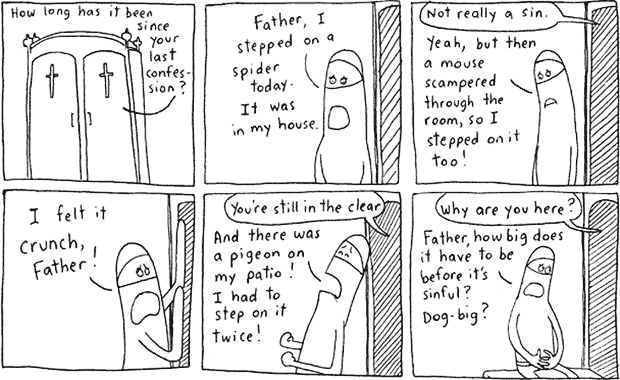 How long has it been
since
your
last
confes-
sion?
Father, I
stepped on a
spider
today.
It was
in my house.
Not really a sin.
Yeah, but then
a mouse
scampered
through the
room, so I
stepped on it
too!
I felt it
crunch,
Father!
You're still in the clear
And there was
a pigeon on
my patio!
I had to
step on it
twice!
Why are you here?
Father, how big does
it have to be
before it's
sinful?
Dog-big?